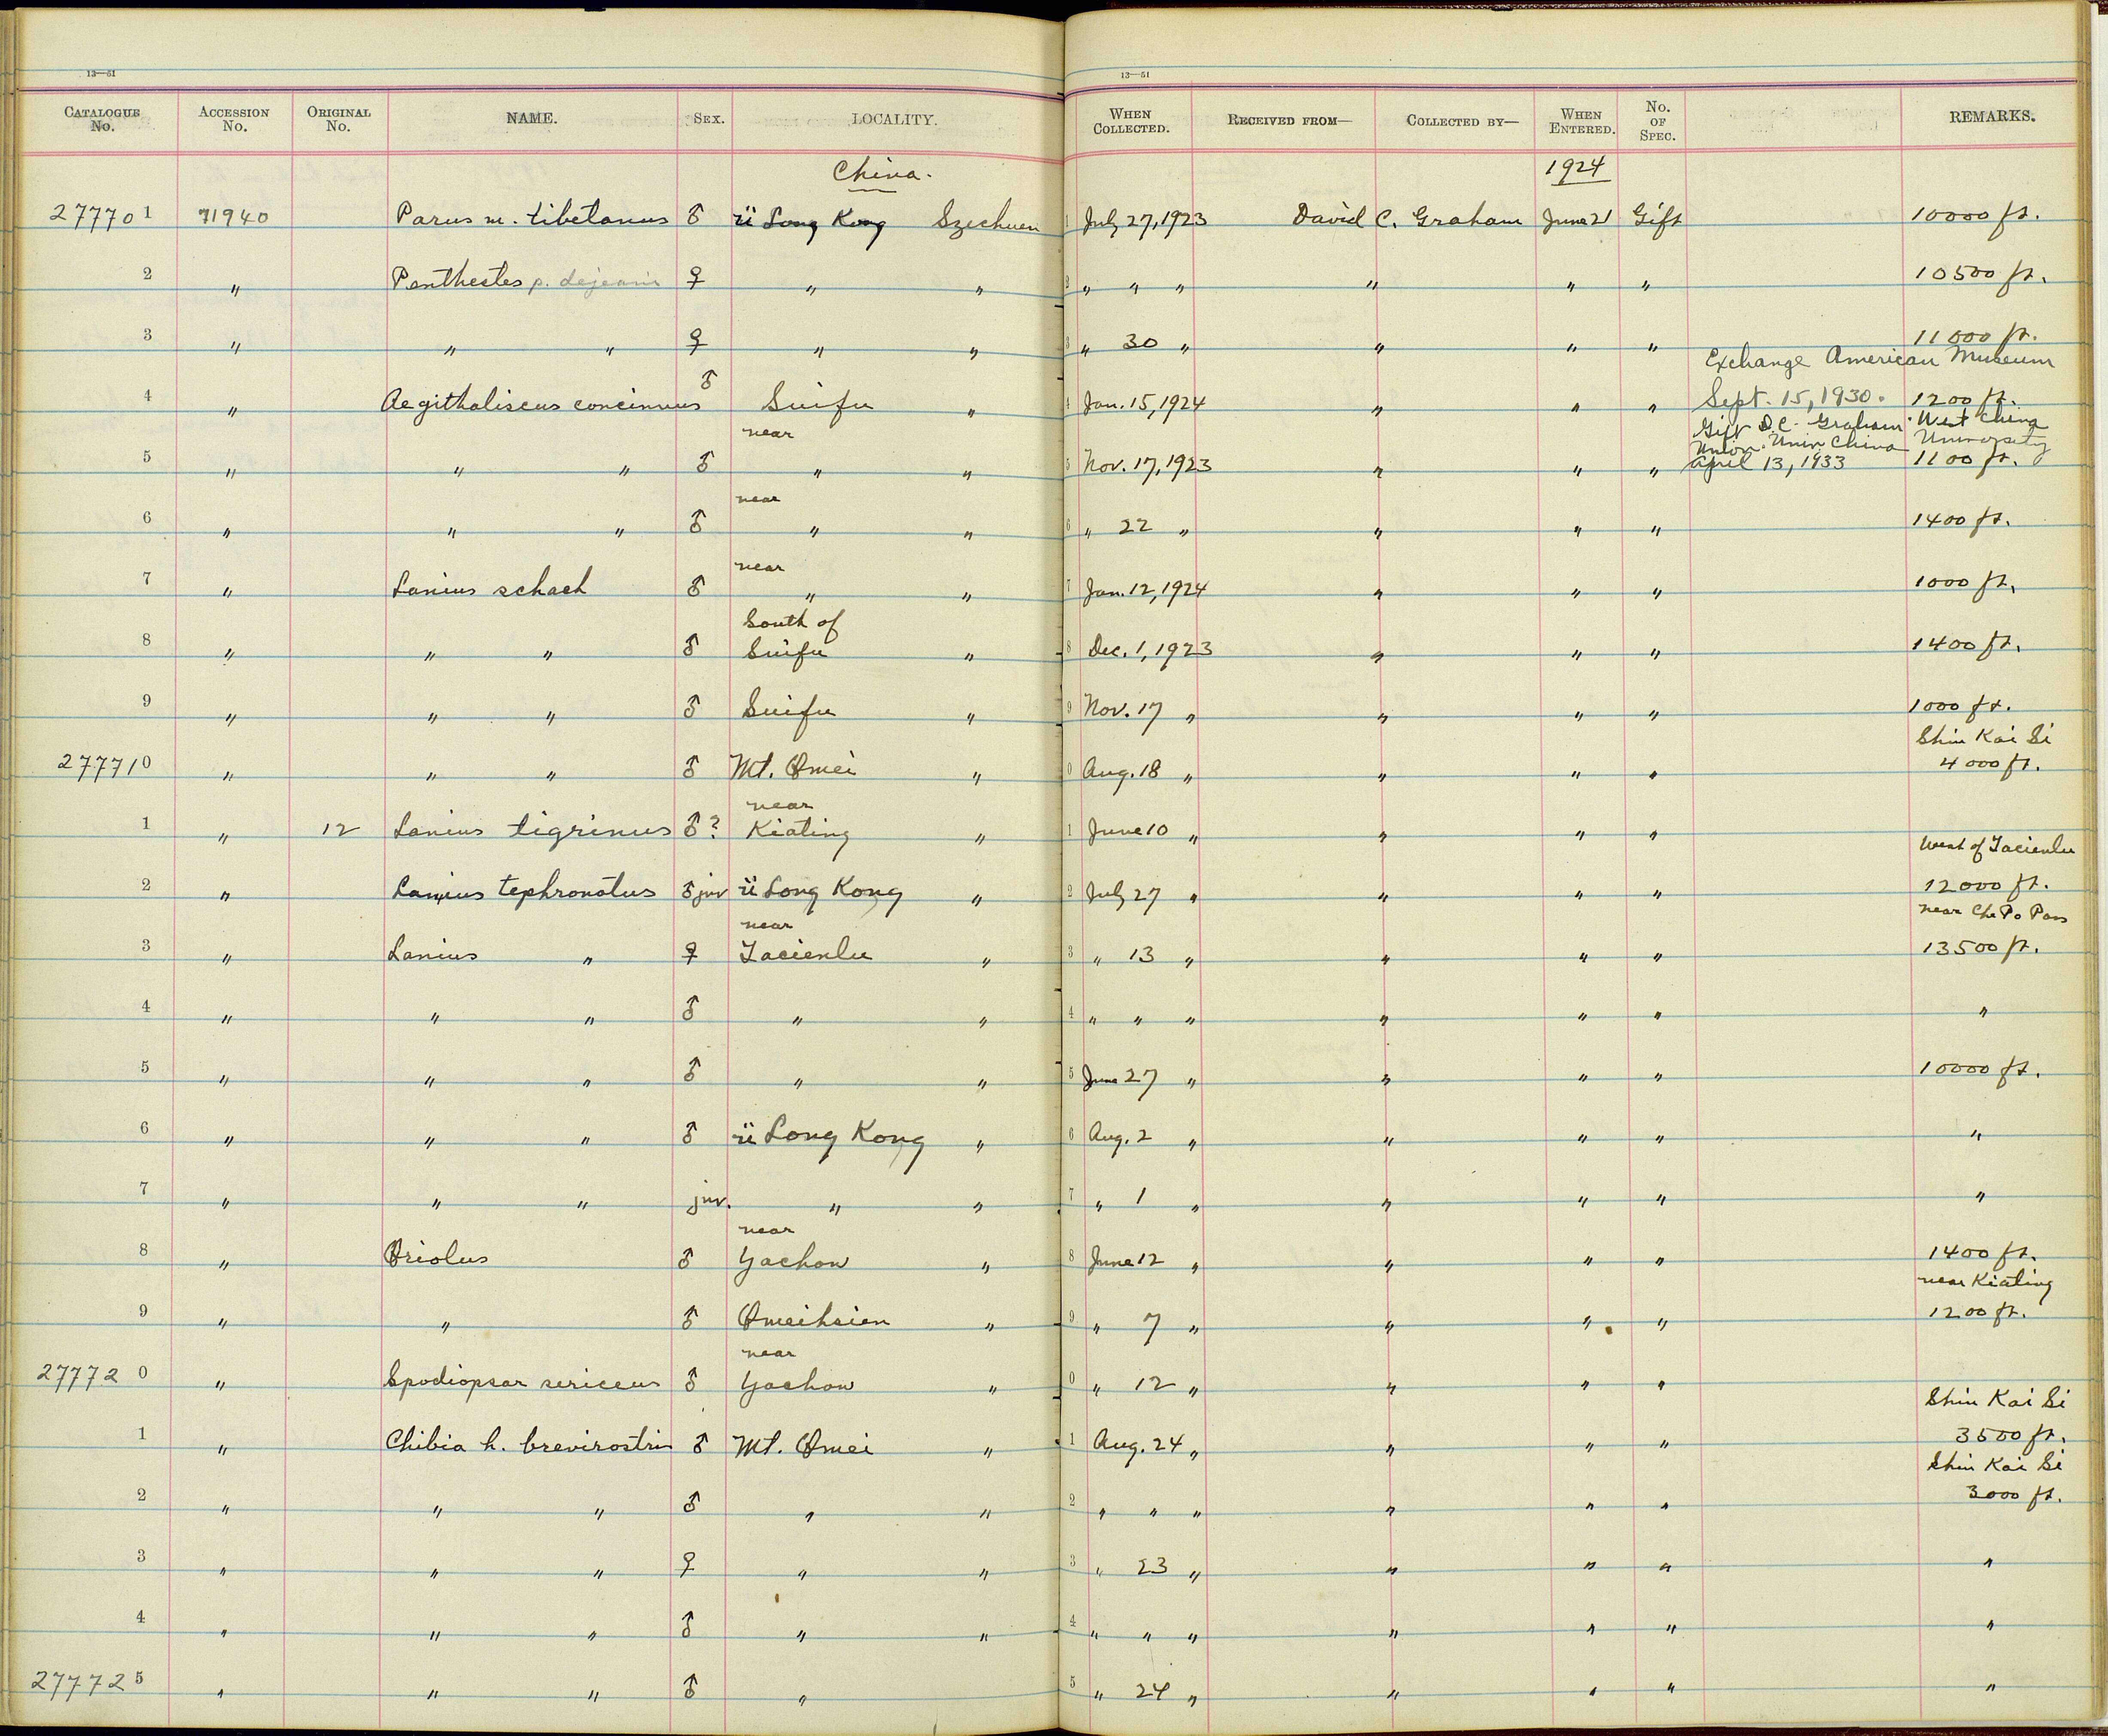 13—51 13—51
CATALOGUE No. ACCESSION No. ORIGINAL No. NAME. SEX. LOCALITY. WHEN COLLECTED. RECEIVED FROM— COLLECTED BY— WHEN ENTERED. No. OF SPEC. REMARKS.
China. 1924
277701 71940 Parus m. tibetanus ♂ ü Long Kong Szechuen 1 July 27, 1923 David C. Graham June 21 Gift 10000 ft.
2 " Penthestes p. dejeani ♀ " " 2 " " " " " " 10500 ft.
3 " " " ♀ " " 3 " 30 " " " " 11000 ft.
Exchange American Museum
4 " Aegithaliscus concinnus ♂ Suifu " 4 Jan. 15, 1924 " " " Sept. 15, 1930. 1200 ft.
near Gift D.C. Graham West China
Union Univ China University
5 " " " ♂ " " 5 Nov. 17, 1923 " " " April 13, 1933 1100 ft.
near
6 " " " ♂ " " 6 " 22 " " " " 1400 ft.
near
7 " Lanius schach ♂ " " 7 Jan. 12, 1924 " " " 1000 ft.
South of
8 " " " ♂ Suifu " 8 Dec. 1, 1923 " " " 1400 ft.
9 " " " ♂ Suifu " 9 Nov. 17 " " " " 1000 ft.
Shin Kai Si
277710 " " " ♂ Mt. Omei " 0 Aug. 18 " " " " 4000 ft.
near
1 " 12 Lanius tigrinus ♂? Kiating " 1 June 10 " " " "
West of Tacienlu
2 " Lanius tephronotus ♂ juv ü Long Kong " 2 July 27 " " " " 12000 ft.
near near Che To Pass
3 " Lanius " ♀ Tacienlu " 3 " 13 " " " " 13500 ft.
4 " " " ♂ " " 4 " " " " " " "
5 " " " ♂ " " 5 June 27 " " " " 10000 ft.
6 " " " ♂ ü Long Kong " 6 Aug. 2 " " " " "
7 " " " juv. " " 7 " 1 " " " " "
near
8 " Oriolus ♂ Yachow " 8 June 12 " " " " 1400 ft.
near Kiating
9 " " ♂ Omeihsien " 9 " 7 " " " " 1200 ft.
near
277720 " Spodiopsar sericeus ♂ Yachow " 0 " 12 " " " "
Shin Kai Si
1 " Chibia h. brevirostris ♂ Mt. Omei " 1 Aug. 24 " " " " 3500 ft.
Shin Kai Si
2 " " " ♂ " " 2 " " " " " " 3000 ft.
3 " " " ♀ " " 3 " 23 " " " " "
4 " " " ♂ " " 4 " " " " " " "
277725 " " " ♂ " 5 " 24 " " " " "